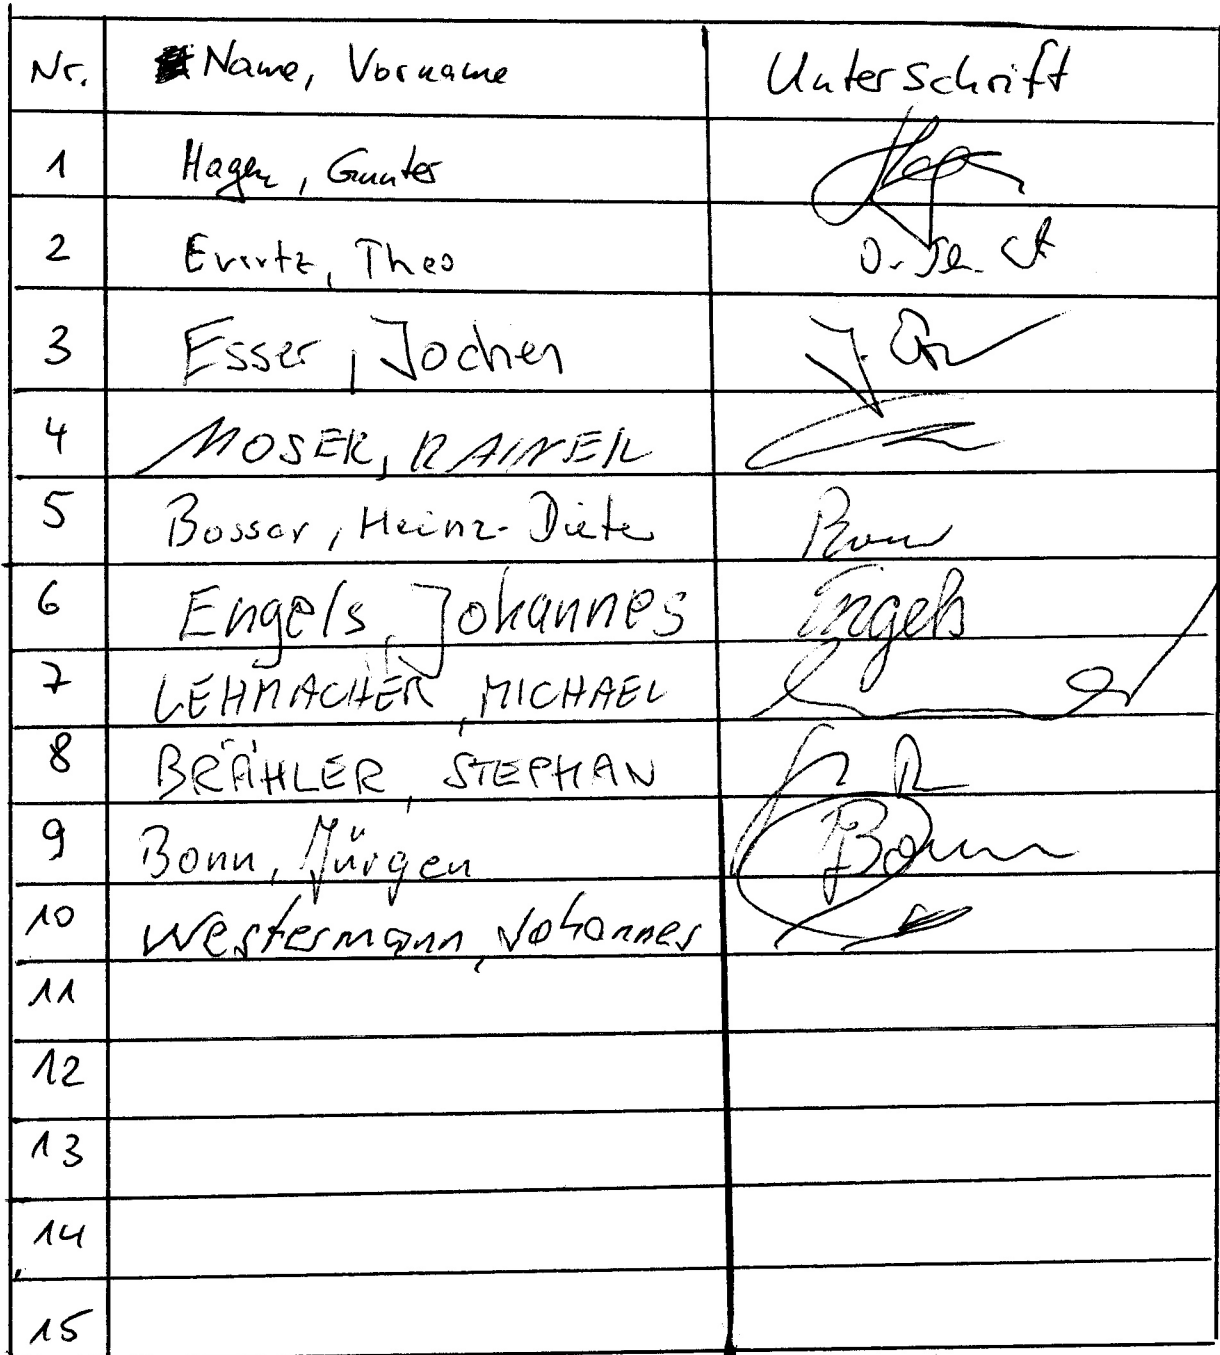 Nr. Name, Vorname Unterschrift
1 Hagen, Gunter
2 Evertz, Theo
3 Esser, Jochen J.
4 MOSER, RAINER
5 Bosser, Heinz-Dieter
6 Engels, Johannes Engels
7 LEHMACHER, MICHAEL
8 BRÄHLER, STEPHAN
9 Bonn, Jürgen JBonn
10 Westermann, Johannes
11
12
13
14
15